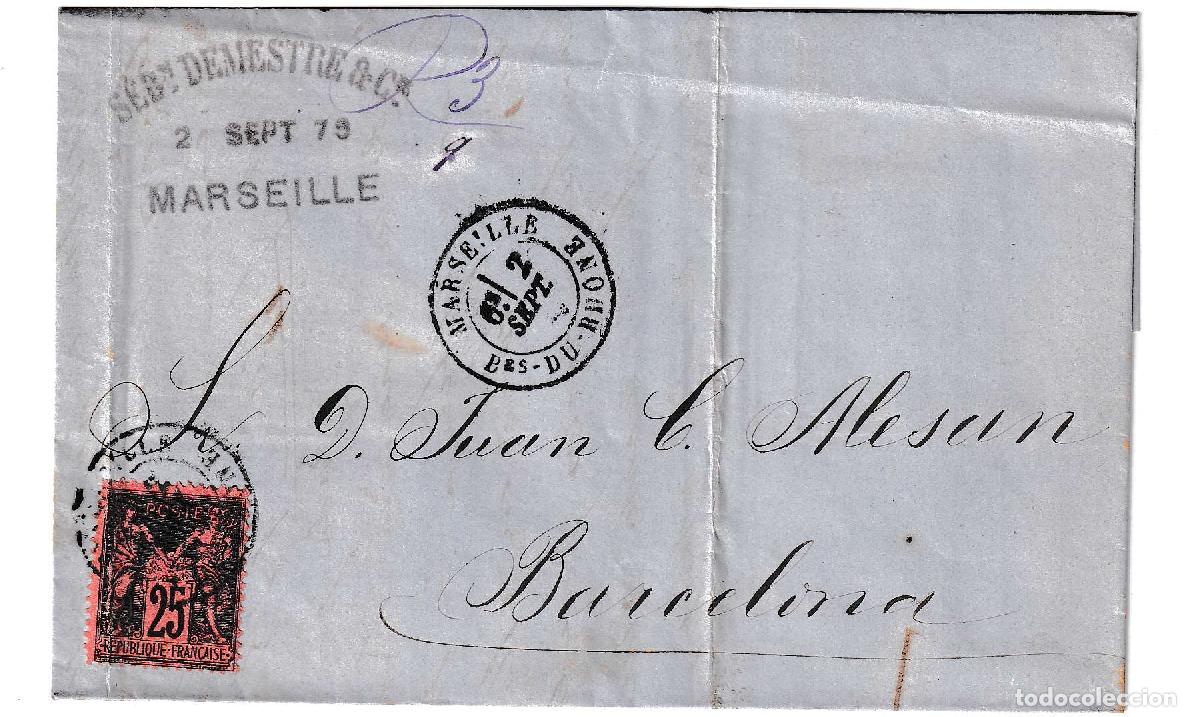 SEBN DEMESTRE & CIE
2 SEPT 79
MARSEILLE
R 3
9
MARSEILLE
6E/ 2
SEPT
BES-DU-RHONE
S. D. Juan C. Alesan
Barcelona
POSTES
25
REPUBLIQUE-FRANÇAISE
todocoleccion